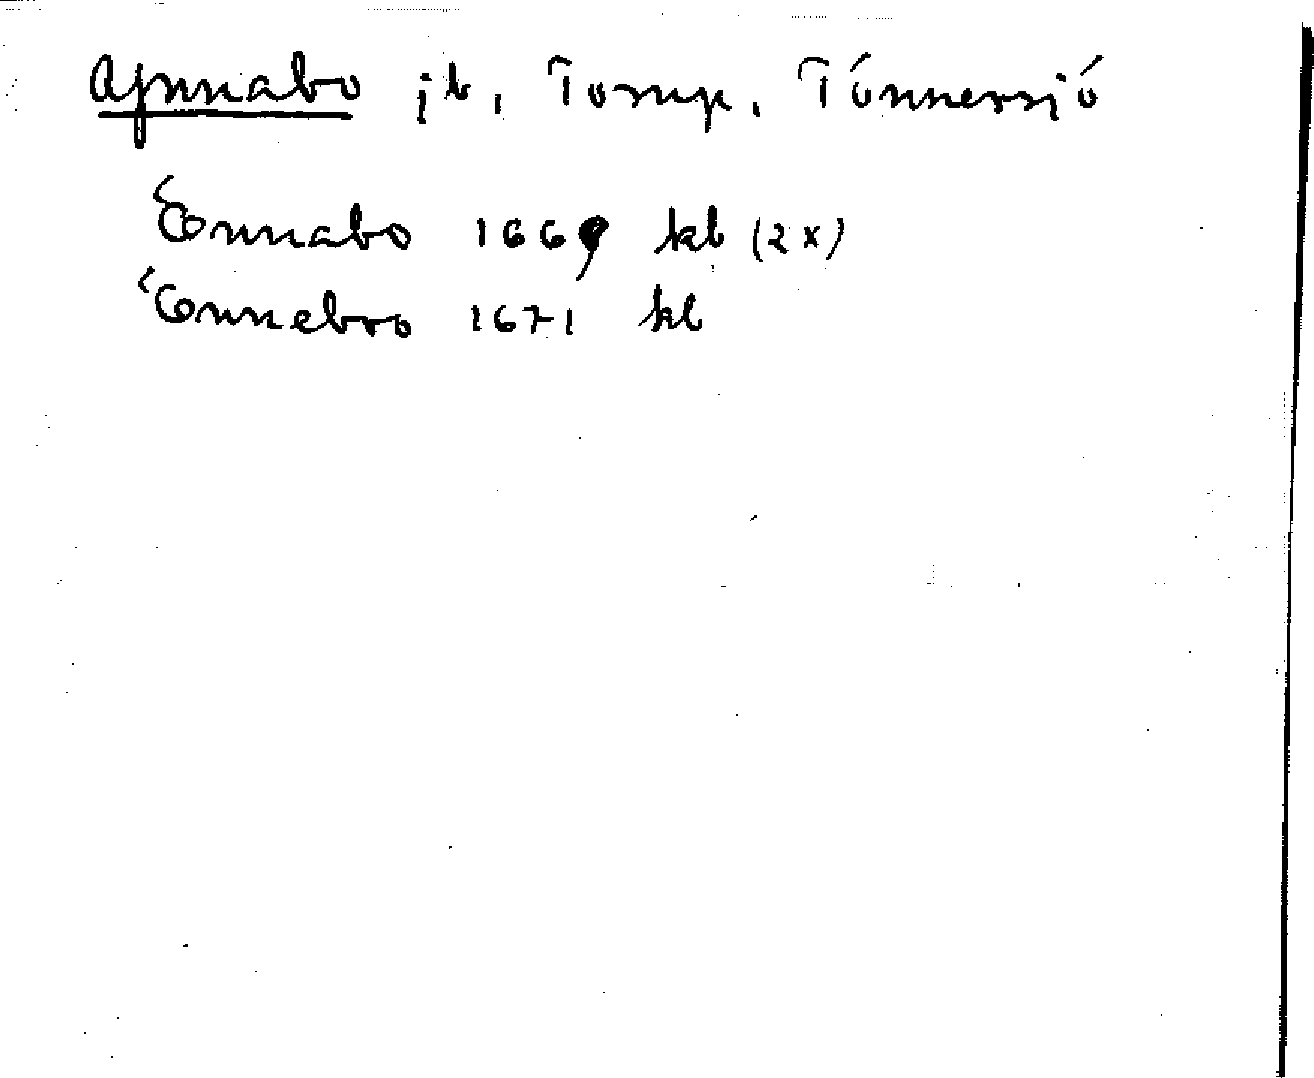 Ynnabo jb, Torup, Tönnersjö
Önnabo 1669 kb (2x)
Önnebro 1671 kb